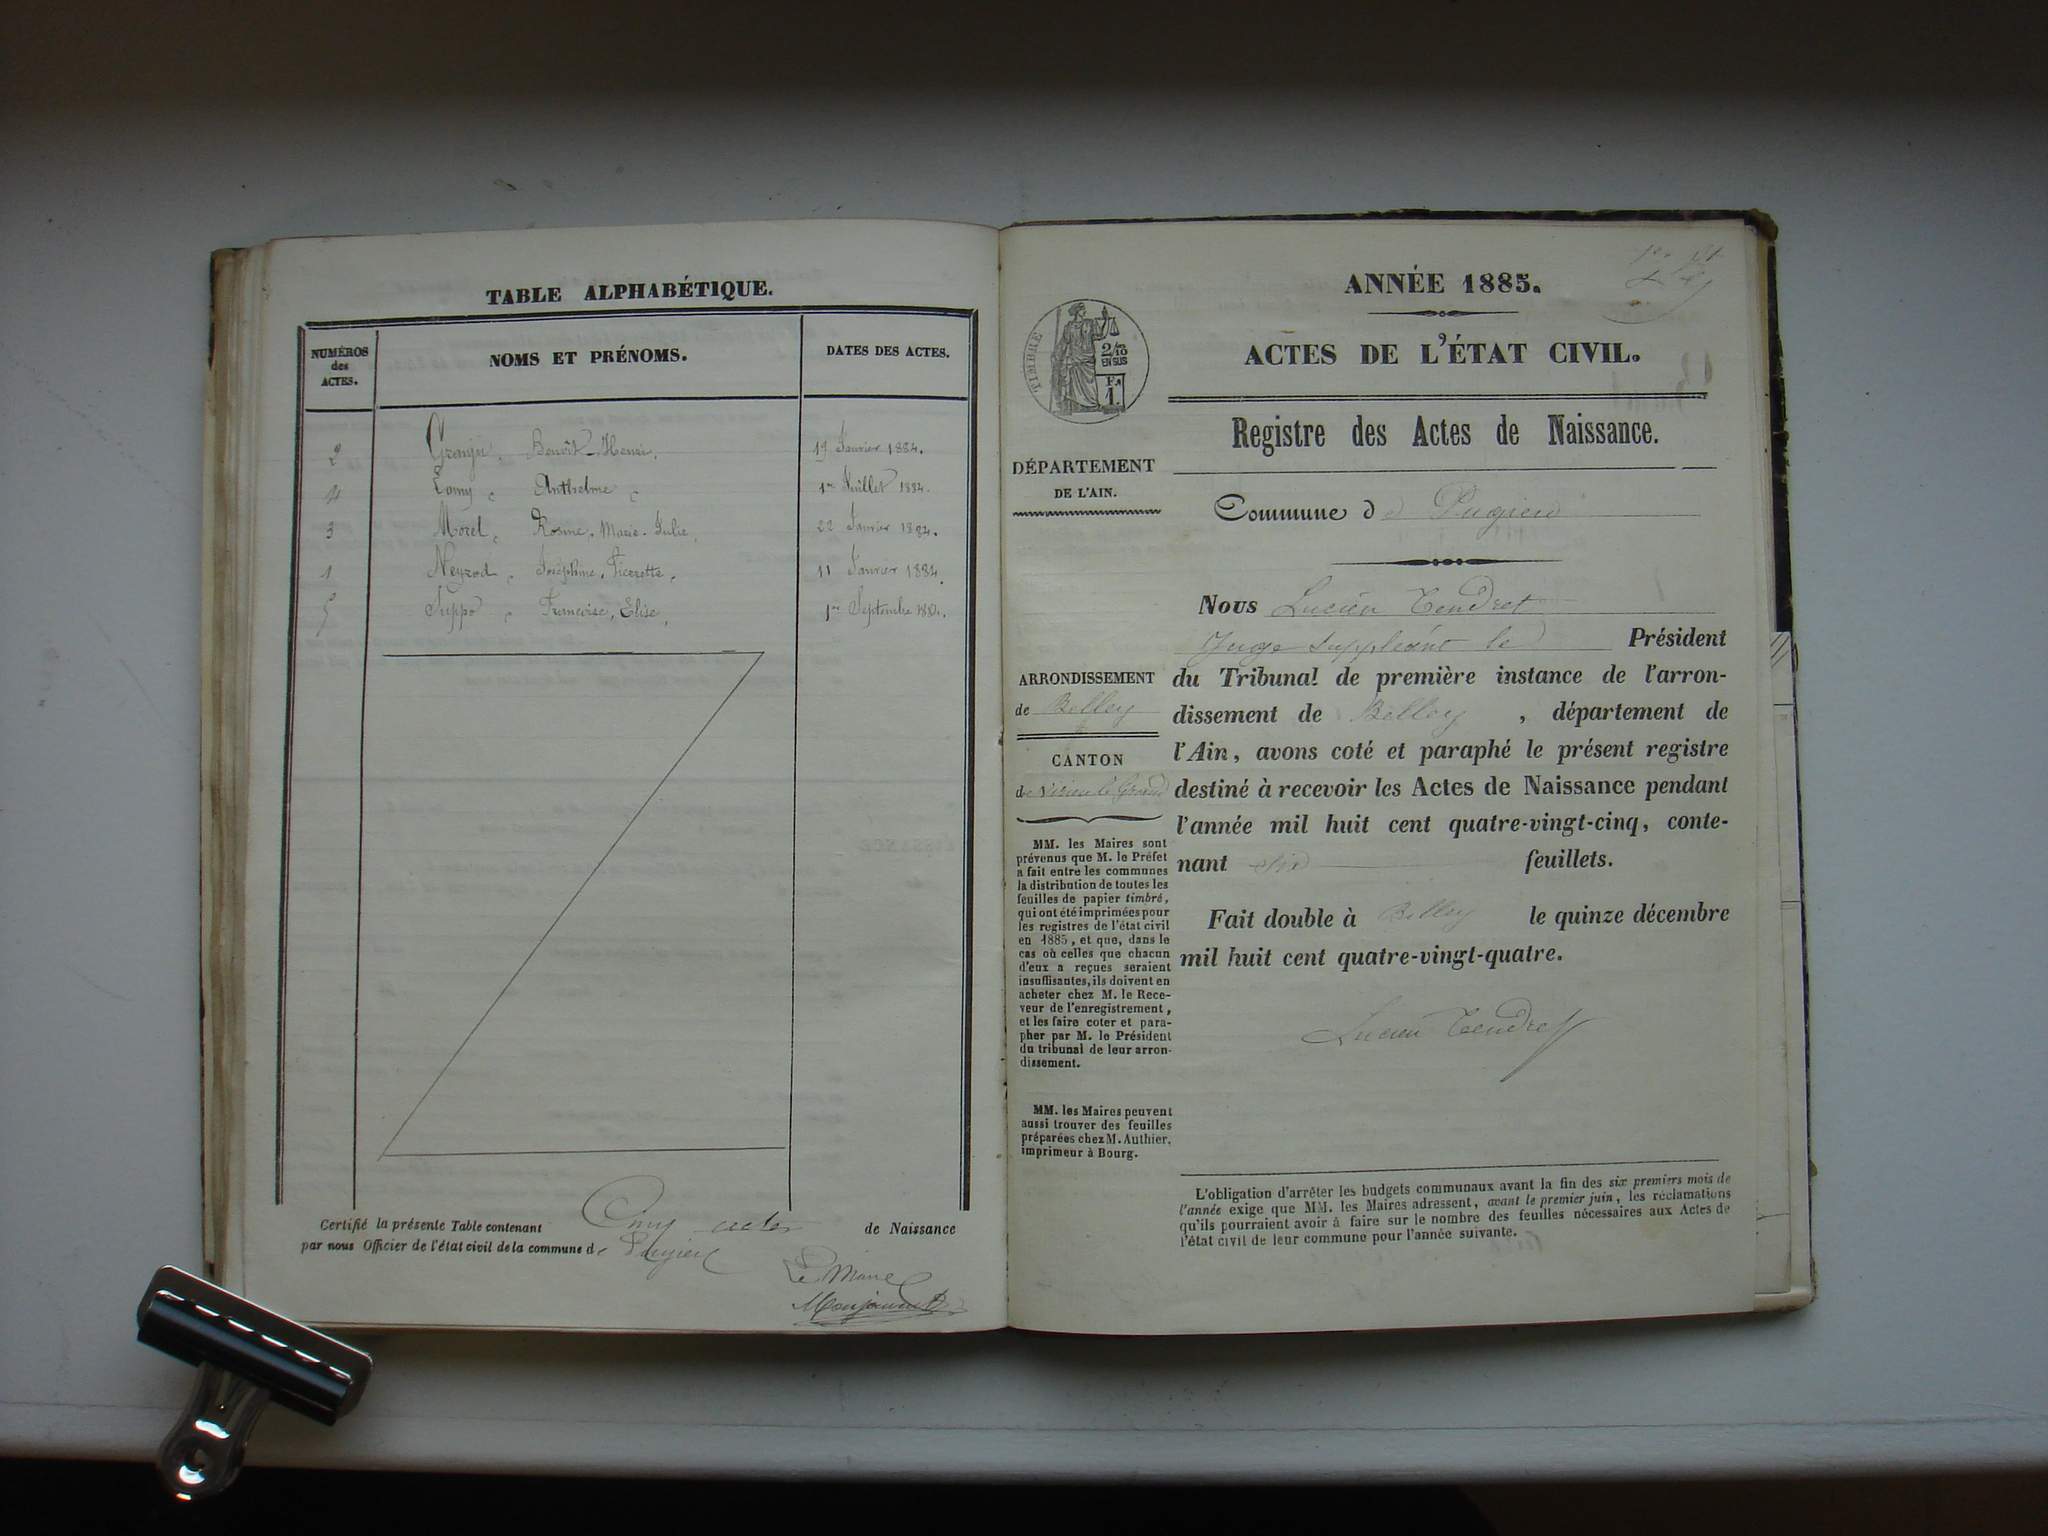 TABLE ALPHABÉTIQUE.
NUMÉROS
des
ACTES.
NOMS ET PRÉNOMS.
DATES DES ACTES.
2 Benoît-Henri, 19 Janvier 1884.
4 Lamy, Anthelme, 1er Juillet 1884.
3 Morel, Rosine, Marie-Julie, 22 Janvier 1884.
1 Neyrod, Joséphine, Pierrette, 11 Janvier 1884.
5 Suppo, Françoise, Elise, 1er Septembre 1884.
Certifié la présente Table contenant Cinq actes de Naissance
par nous Officier de l'état civil de la commune de Pugieu
Le Maire
ANNÉE 1885.
ACTES DE L'ÉTAT CIVIL.
TIMBRE
2/10
EN SUS
F.
1.
Registre des Actes de Naissance.
DÉPARTEMENT
DE L'AIN.
Commune d e Pugieu
Nous Lucien Tendret
Juge suppléant le Président
du Tribunal de première instance de l'arron-
dissement de Belley, département de
l'Ain, avons coté et paraphé le présent registre
destiné à recevoir les Actes de Naissance pendant
l'année mil huit cent quatre-vingt-cinq, conte-
nant six feuillets.
Fait double à Belley le quinze décembre
mil huit cent quatre-vingt-quatre.
Lucien Tendret
ARRONDISSEMENT
de Belley
CANTON
de Virieu le Grand
MM. les Maires sont
prévenus que M. le Préfet
a fait entre les communes
la distribution de toutes les
feuilles de papier timbré,
qui ont été imprimées pour
les registres de l'état civil
en 1885, et que, dans le
cas où celles que chacun
d'eux a reçues seraient
insuffisantes, ils doivent en
acheter chez M. le Rece-
veur de l'enregistrement,
et les faire coter et para-
pher par M. le Président
du tribunal de leur arron-
dissement.
MM. les Maires peuvent
aussi trouver des feuilles
préparées chez M. Authier,
imprimeur à Bourg.
L'obligation d'arrêter les budgets communaux avant la fin des six premiers mois de
l'année exige que MM. les Maires adressent, avant le premier juin, les réclamations
qu'ils pourraient avoir à faire sur le nombre des feuilles nécessaires aux Actes de
l'état civil de leur commune pour l'année suivante.